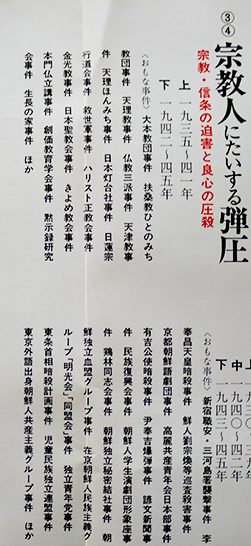 ③④ 宗教人にたいする弾圧
宗教・信条の迫害と良心の圧殺
上 一九三五〜四一年
下 一九四二〜四五年
〈おもな事件〉 大本教団事件 扶桑教ひとのみち
教団事件 天理教事件 仏教三派事件 天津教事
件 天理ほんみち事件 日本灯台社事件 日蓮宗
行道会事件 救世軍事件 ハリスト正教会事件
金光教事件 日本聖教会事件 きよめ教会事件
本門仏立講事件 創価教育学会事件 黙示録研究
会事件 生長の家事件 ほか
上 一九
中 一九四〇〜四二年
下 一九四三〜四五年
〈おもな事件〉 新宿職安・三河島署襲撃事件 李
奉昌天皇暗殺事件 鮮人劉宗煥等巡査殺害事件
京都朝鮮語劇団事件 高麗共産青年会日本部事件
有吉公使暗殺事件 尹奉吉爆弾事件 諺文新聞事
件 民族復興会事件 朝鮮人学生演劇団形象座事
件 鶏林同志会事件 朝鮮独立秘密結社事件 朝
鮮独立血盟グループ事件 在京朝鮮人民族主義グ
ループ「明光会」「同盟会」事件 独立青年党事件
東条首相暗殺計画事件 児童民族独立連盟事件
東京外語出身朝鮮人共産主義グループ事件 ほか